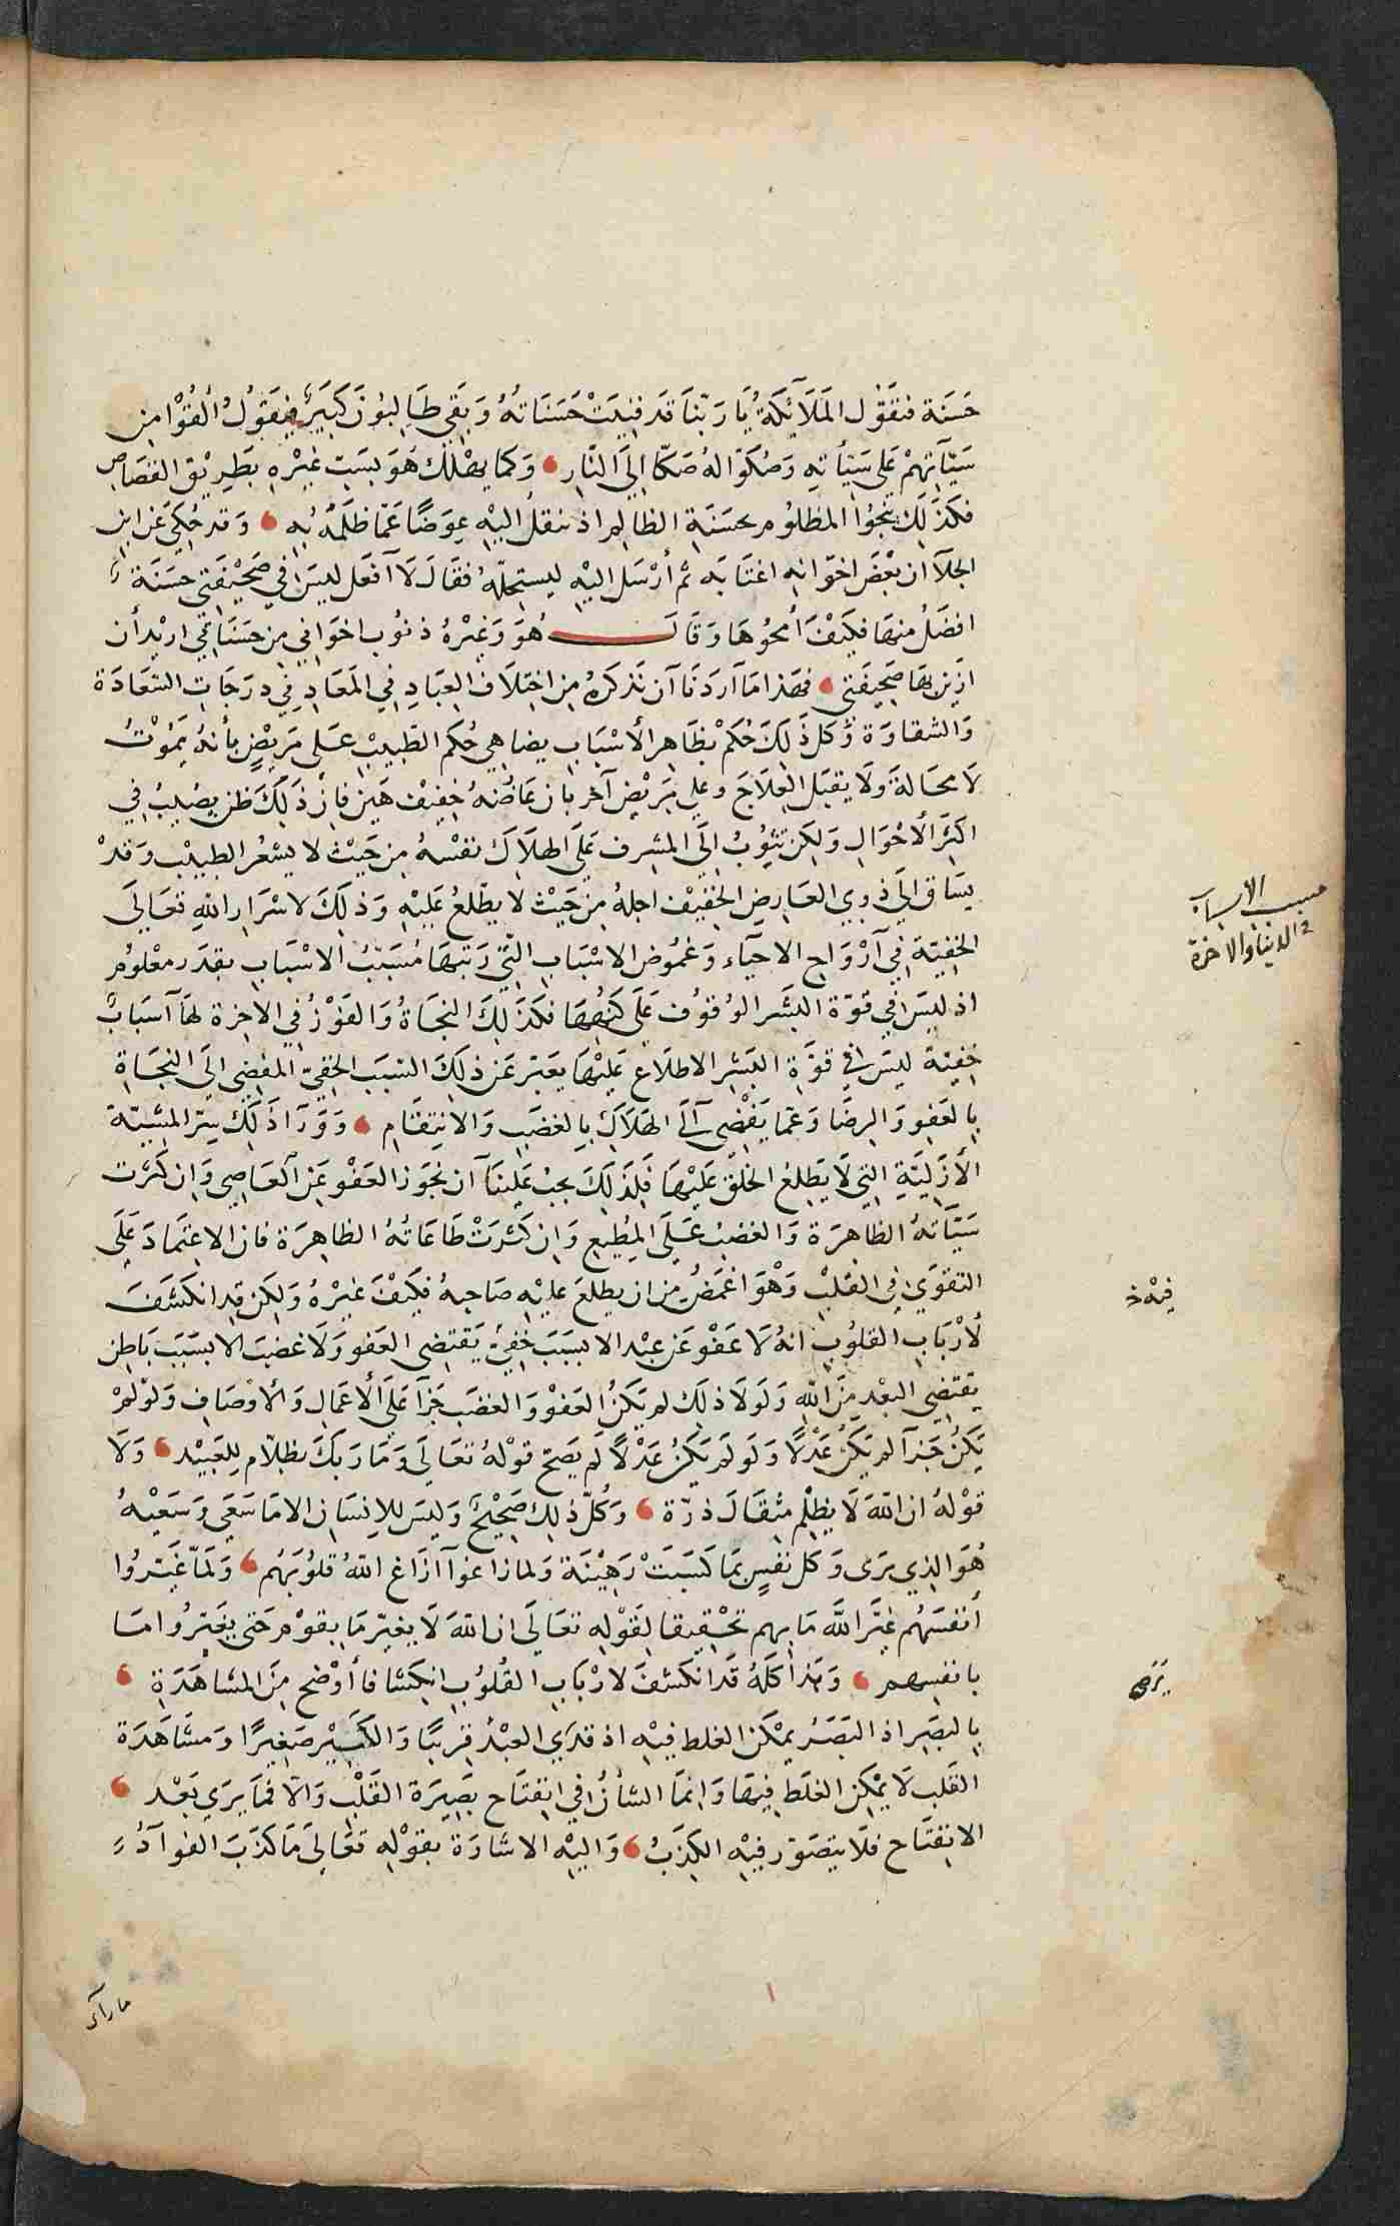 حَسَنَة فتقَوْل المَلَآئِكَةُ يَا رَبّنَا قَد فنِيَتْ حَسَنَاتُهُ وَبَقَى طَالِبُونَ كَبِيَرة فيَقَوُلُ ألْقُوْا مِن
سَيّآتِهمْ عَلى سَيّأتهِ وَصُكّوّا لهُ صَكّا إلَى النّارِ وَكمَا يهْلَكُ هُوَ بسَبَبِ غيْرِهِ بَطِريْق القصَاصِ
فكذَلِكَ ينجُوْا المظلُوُم بحسَنَةِ الظالِم اذ ينقلُ اليْهِ عِوَضًا عَمّا ظلَمَهُ بُهِ وَقد حُكِىَ عَن ابن
الجلآ ان بعْضَ اخوَانهِ اغتَابَه ثم أرْسَل اليْهِ ليستحِلّهُ فقَالَ لَا آفعَل ليسَ في صَحِيْفَتي حسَنَة
افضَلُ منهَا فكَيْفَ أمحُوهَا وَقَالَ هُوَ وَغيْرُهُ ذنوُب اخوَاني مِن حسَنَاتي اريْد أن
ازين بهَا صَحِيفَتي فهَذا مَا آرَدنَا آن نَذكرهُ مِن اختِلَاف العِبَادِ فِي المَعَادِ في دِرَجَاتِ السّعَادَة
وَالشقاوَة وَكل ذَلِكَ حُكمْ بظَاهِر الأسْبَابِ يضاهي حُكم الطّبيبْ عَلى مَريْضٍ بأنهُ يَمُوْتُ
لَا محَالةَ وَلَا يقبَل العِلَاجَ وعلى مَريْضٍ آخر بان عَارضَهُ خفِيْف هَين فانْ ذَلِكَ ظن يصيْبُ في
اكثَر الأحْوَالِ وَلكِن تتوُبُ إلَى المشرِف عَلَى الهلَاكَ نفسُهُ مِن حَيْث لا يشعُر الطبيبْ وَقدْ
يسَاق الى ذوي العَارِضِ الخفِيْف اجلهُ مِن حَيْث لا يطّلعُ عَليْهِ وَذلِكَ لاسْرَارِ اللهِ تعَالَى
الخفِيّةِ فِي آرْوَاحِ الاحيَآء وَغمُوُض الاسْبَابِ التّي رَتبَهَا مُسَبّبُ الاسْبَابِ بقدَر معْلوُم
اذ ليسَ في قوّة البَشَر الوُقوُف عَلَى كنهُهَا فكَذَلِكَ النجَاةُ وَالفَوْزُ فِي الآخِرة لهَا آسبَابٌ
خفِيّة ليسَ فى قوَّةِ البَشِر الاطلَاع عَليْهَا يعَبّر عَن ذلِكَ السّبَبَ الخفِيّ المفضِى إلَى النجَاةِ
بِالعَفو وَالرِضَا وَعمّا يَفْضى آلَى الهَلَاكِ بِالغضَبِ وَالانتِقَامِ وَوَرَآ ذَلِكَ سِرّ المشيّة
الأزَلِيّةِ التي لَا يَطّلِعُ الخلْق عَليْهَا فَلِذَلِكَ يجبُ عَليْنَآ آن نجَوّز العَفْو عَن العَاصِي وَان كثرت
سَيّآتهُ الظاهرَة وَالغضبُ عَلَى المطيعِ وَان كثرَتْ طَاعَاتُهُ الظاهِرَة فان الاعتمَادَ عَلَى
التقوَى فِى القلْبْ وَهْوَ اغمَضُ من ان يطلعَ عليْهِ صَاحِبهُ فكَيْفَ غيْرهُ وَلكِن قد انكشَفَ
لأرْبَاب القلوُبِ انهُ لَا عَفْوَ عَن عبْد الا بسَبَبَ خفِيّ يَقتِضى العَفو وَلَا غضَبَ الا بسَبَبَ بَاطِن
يقتضِي البعْد مِنَ اللهِ وَلولَا ذلِكَ لم يَكُنْ العَفوْ وَالغضَب جَزآ عَلَى الأعمَالِ وَالأوْصَافِ وَلوْ لَمْ
يَكُنُ جَزآ لم يَكُنُ عَدْلًا وَلَو لَم يَكنُ عَدْلًا لَم يصَحّ قوْلهُ تعَالَى وَمَا رَبكَ بظلّامٍ للعَبيْد وَلَا
قوْلهُ ان اللهَ لَا يظلِم مثقَالَ ذرّة وَكُلّ ذلِكَ صَحِيْحٌ وَليسَ للاِنسَان الا مَا سَعَى وَسَعْيهُ
هُوَ الذِي يرَى وَكلّ نفْسٍ بمَا كسَبَتْ رَهِيْنَة وَلما زاغوآ آزَاغ اللهُ قلوُبَهُم وَلَمّا غَيّرُوا
أنفسَهُم غيَّر اللهَ مَا بهم تحْقيقا لقَوْلهِ تعَالَى ان اللهَ لَا يغيّر مَا بقوْم حَتى يغَيّرُوا مَا
بانفسِهم وَهَذا كلهُ قَد انكشفَ لارْبَابِ القُلوُبِ انكشافا أوْضح مِنَ المشَاهَدَةِ
بِالبصَر اذ البَصَرُ يمْكن الغلط فيْهِ اذ قد يَرَي العبْدُ قريبًا وَالكَبيْر صَغِيرًا وَمشَاهَدَة
القَلب لَا يمْكِن الغلَط فِيهَا وَانمَا الشأنُ في انفِتَاحِ بَصِيَرة القَلْبِ وَالّا فمَا يرَي بعْد
الانِفِتَاح فلَا يتصَوّر فيْهِ الكِذَبُ وَاليْهِ الاشَارَة بقوْلهِ تعَالىَ مَا كذَبَ الفؤآدُ
مسبب الاسباب
في الدنيا والاخرة
فيْهِ خ
يَرى
ما رآى